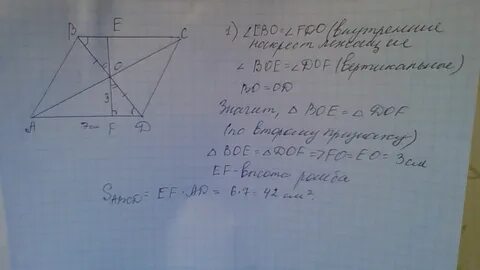 B E C
O
3
A 7см F D
1) ∠EBO = ∠FDO (внутренние
накрест лежащие
∠ BOE = ∠DOF (вертикальные)
BO = OD
Значит, △ BOE = △ DOF
(по второму признаку)
△ BOE = △DOF => FO = EO = 3 см
EF - высота ромба
S ABCD = EF · AD = 6 · 7 = 42 см².